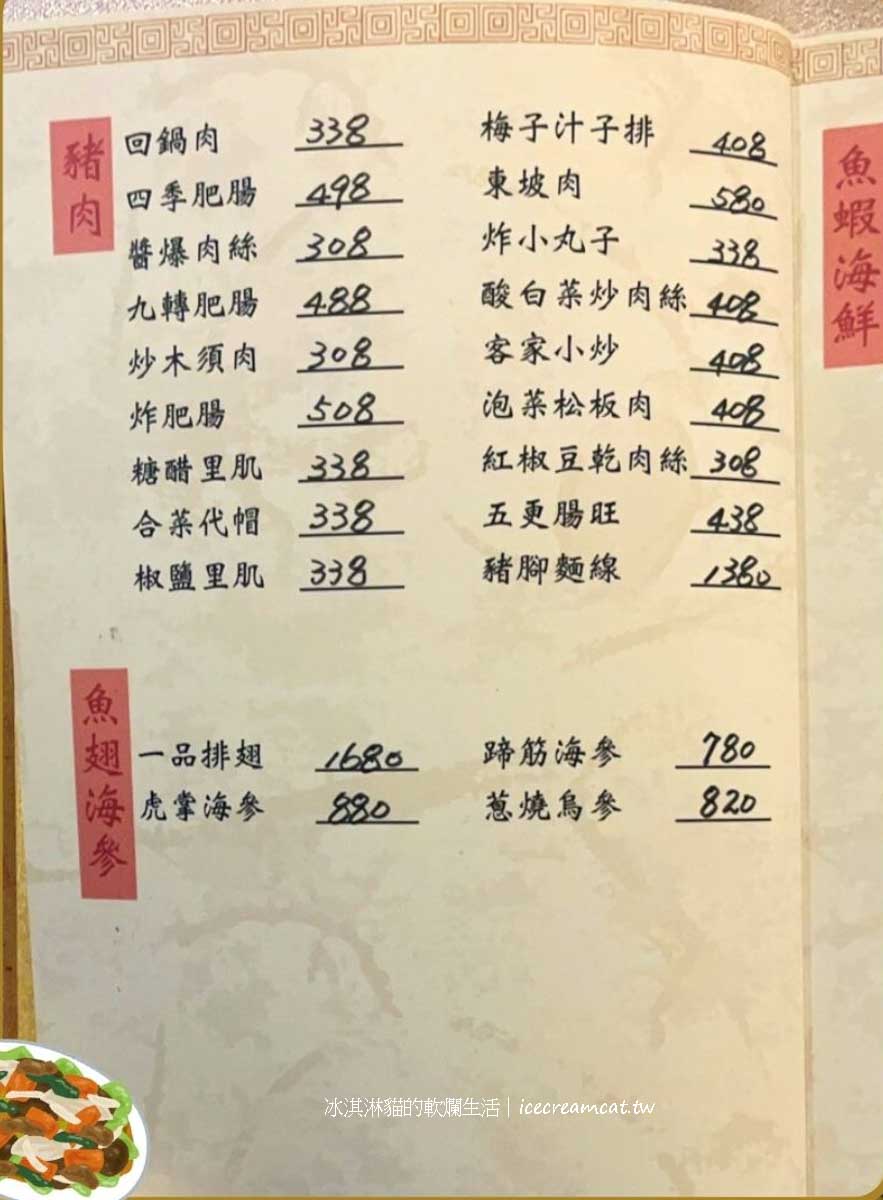 豬肉
回鍋肉 338
四季肥腸 498
醬爆肉絲 308
九轉肥腸 488
炒木須肉 308
炸肥腸 508
糖醋里肌 338
合菜代帽 338
椒鹽里肌 338
梅子汁子排 408
東坡肉 580
炸小丸子 338
酸白菜炒肉絲 408
客家小炒 408
泡菜松板肉 408
紅椒豆乾肉絲 308
五更腸旺 438
豬腳麵線 1380
魚翅海參
一品排翅 1680
虎掌海參 880
蹄筋海參 780
蔥燒烏參 820
魚蝦海鮮
冰淇淋貓的軟爛生活｜icecreamcat.tw